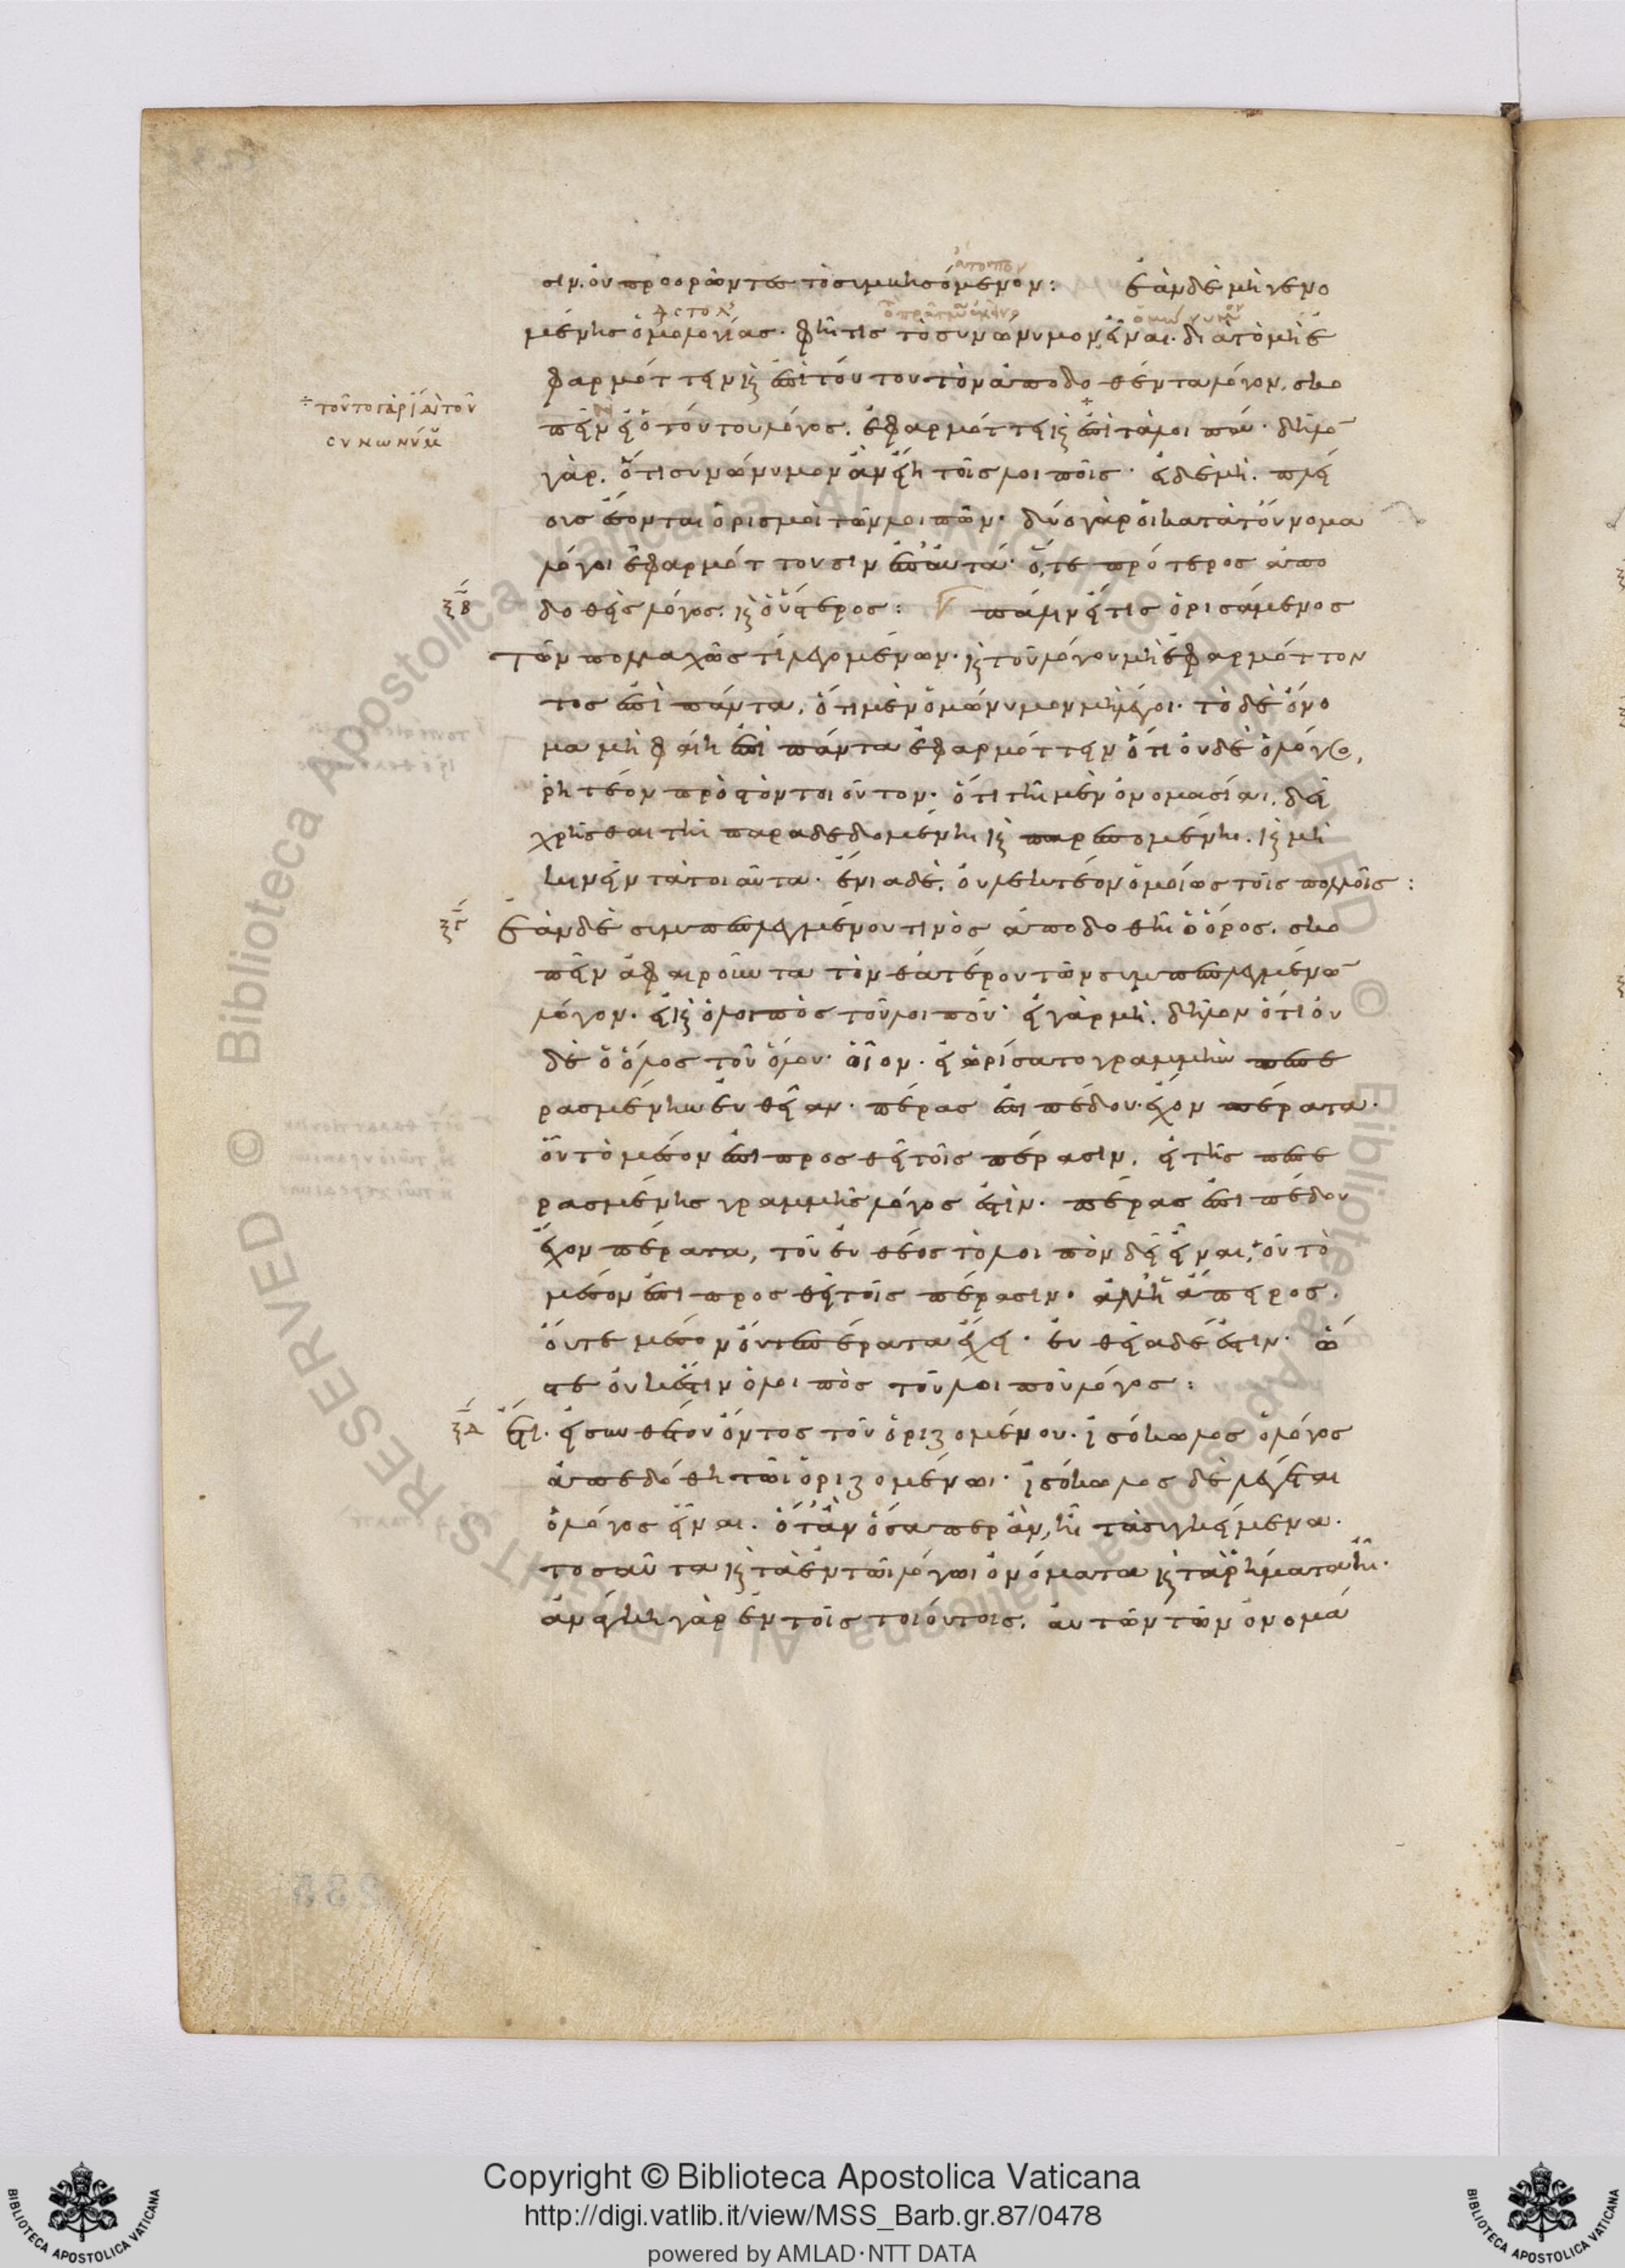 ἄτοπον
σιν. οὐ προορῶντες τὸ συμβησόμενον: ἐὰν δὲ μὴ γενο
μένης ὁμολογίας. φῆ τις τὸ συνώνυμον εἶναι. διὰ τὸ μὴ ἐ
φαρμόττειν καὶ ἐπὶ τοῦτον τὸν ἀποδοθέντα λόγον, σκο
÷ τοῦτο γὰρ ἴδιον τοῦ
συνωνύμ
πεῖν εἰ ὁ τούτου λόγος. ἐφαρμόττει καὶ ἐπὶ τὰ λοιπά. δῆλον
γὰρ. ὅτι συνώνυμον ἂν εἴη τοῖς λοιποῖς. εἰ δὲ μή. πλεί
ους ἔσονται ὁρισμοὶ τῶν λοιπῶν. δύο γὰρ οἱ κατὰ τοὔνομα
λόγοι ἐφαρμόττουσιν ἐπ' αὐτά. ὅ,τε πρότερος ἀπο
ξβ
δοθεὶς λόγος. καὶ ὁ ὕστερος: πάλιν εἴ τις ὁρισάμενος
τῶν πολλαχῶς τι λεγομένων. καὶ τοῦ λόγου μὴ ἐφαρμόττον
τος ἐπὶ πάντα, ὅτι μὲν ὁμώνυμον μὴ λέγοι. τὸ δὲ ὄνο
μα μὴ φαίη ἐπὶ πάντα ἐφαρμόττειν ὅτι οὐδὲ ὁ λόγος,
ῥητέον πρὸς τὸν τοιοῦτον. ὅτι τῆι μὲν ὀνομασίαι. δεῖ
χρῆσθαι τῆι παραδεδομένηι καὶ παρεπομένηι. καὶ μὴ
κινεῖν τὰ τοιαῦτα. ἔνια δὲ, οὐ λεκτέον ὁμοίως τοῖς πολλοῖς:
ξγ
ἐὰν δὲ συμπεπλεγμένου τινὸς ἀποδοθῆι ὁ ὅρος. σκο
πεῖν ἀφαιροῦντα τὸν θατέρου τῶν συμπεπλεγμένων
λόγον. εἰ καὶ ὁ λοιπὸς τοῦ λοιποῦ. εἰ γὰρ μή. δῆλον ὅτι οὐ
δὲ ὁ ὅλος τοῦ ὅλου. οἷον. εἰ ὡρίσατο γραμμὴν πεπε
ρασμένην εὐθεῖαν. πέρας ἐπιπέδου ἔχον πέρατα.
οὗ τὸ μέσον ἐπιπροσθεῖ τοῖς πέρασιν. εἰ τῆς πεπε
ρασμένης γραμμῆς λόγος ἐστὶν. πέρας ἐπιπέδου
ἔχον πέρατα, τοῦ εὐθέος τὸ λοιπὸν δεῖ εἶναι, οὗ τὸ
μέσον ἐπιπροσθεῖ τοῖς πέρασιν. ἀλλ' ἡ ἄπειρος.
οὔτε μέσον οὔτε πέρατα ἔχει. εὐθεῖα δέ ἐστιν. ὥ
στε οὐκ ἔστιν ὁ λοιπὸς τοῦ λοιποῦ λόγος:
ξδ
ἔτι. εἰ συνθέτου ὄντος τοῦ ὁριζομένου. ἰσόκωλος ὁ λόγος
ἀπεδόθη τῶι ὁριζομένωι. ἰσόκωλος δὲ λέγεται
ὁ λόγος εἶναι. ὅταν ὅσα περ ἂν, ἦι τὰ συγκείμενα.
τοσαῦτα καὶ τὰ ἐν τῶι λόγωι ὀνόματα καὶ τὰ ῥήματα ἦι.
ἀνάγκη γὰρ ἐν τοῖς τοιούτοις. αὐτῶν τῶν ὀνομά
Copyright © Biblioteca Apostolica Vaticana
http://digi.vatlib.it/view/MSS_Barb.gr.87/0478
powered by AMLAD·NTT DATA